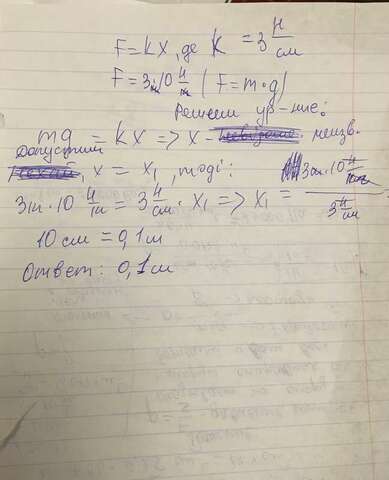 F = kx, де K = 3 Н/см
F = 3 · 10 Н/ (F = m·g)
Решаем ур-ние:
mg = kx => x - неизв.
Допустим x = x₁, тоді:
3 · 10 Н/ = 3 Н/см · x₁ => x₁ = 3 · 10 Н/ / 3 Н/см
10 см = 0,1 м
Ответ: 0,1 м